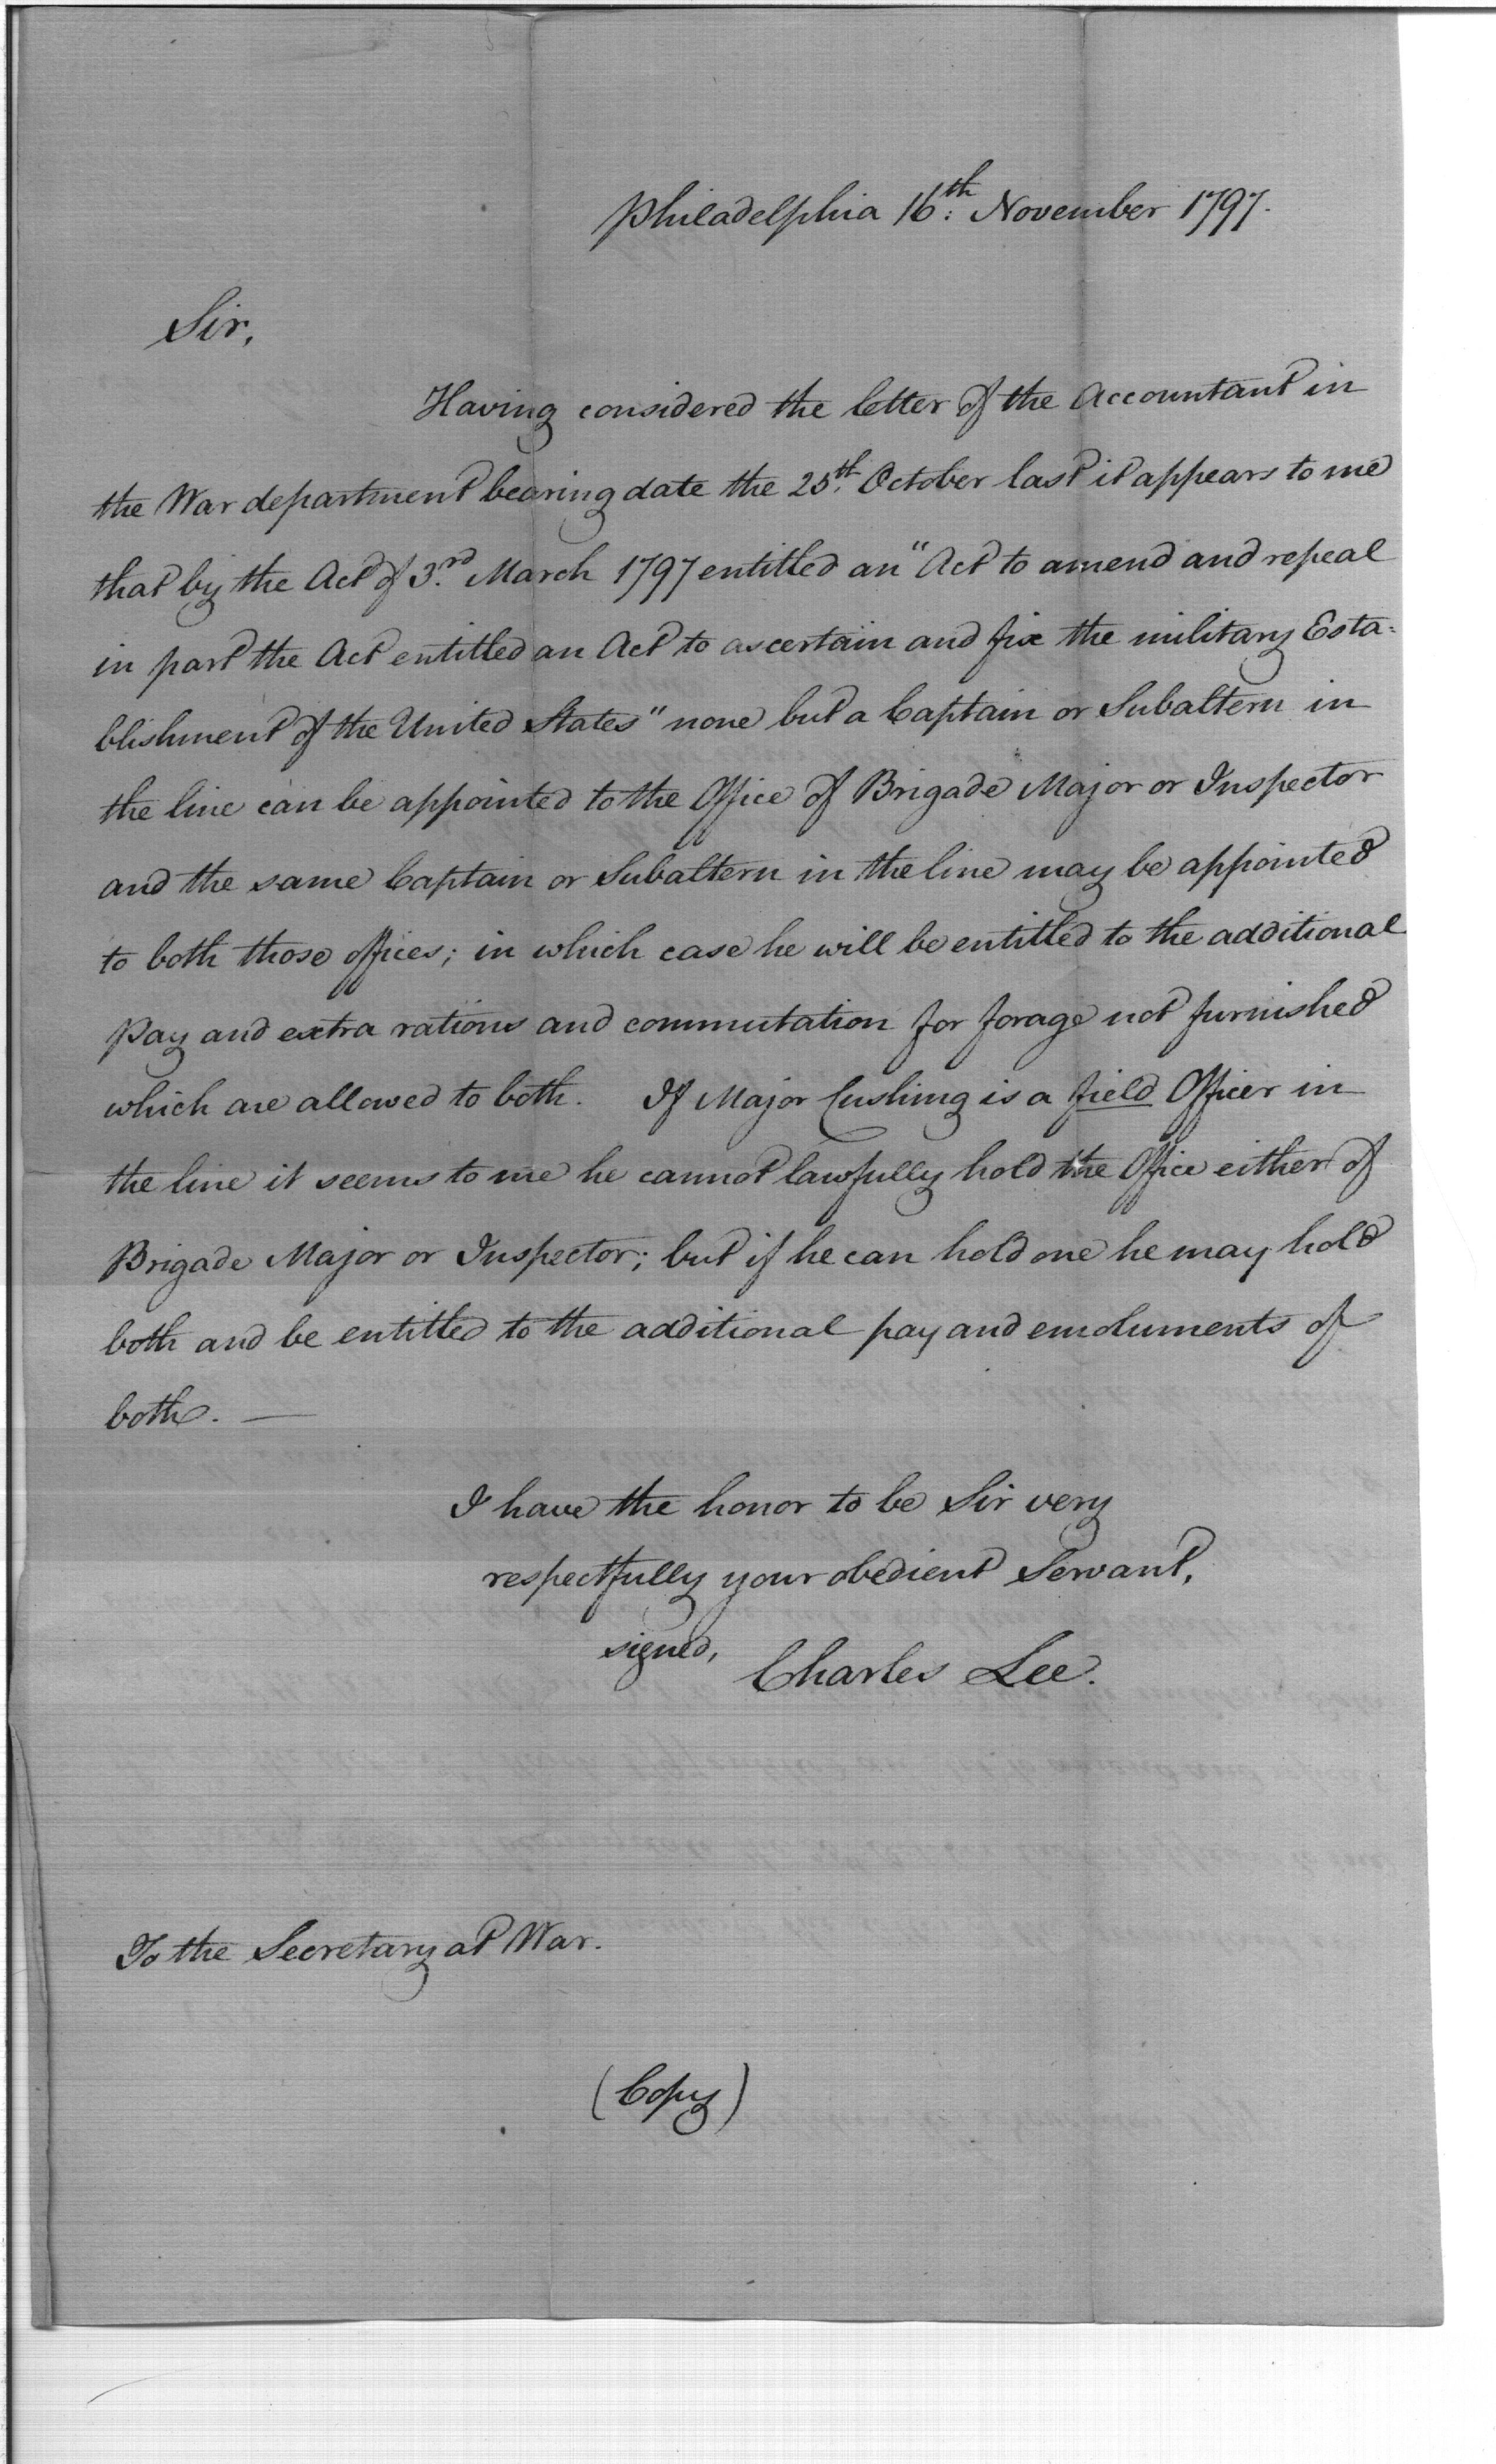 Philadelphia 16th: November 1797.
Sir,
Having considered the letter of the Accountant in
the War department bearing date the 25th. October last it appears to me
that by the Act of 3.rd March 1797 entitled an "Act to amend and repeal
in part the Act entitled an Act to ascertain and fix the military Esta=
blishment of the United States" none but a Captain or Subaltern in
the line can be appointed to the Office of Brigade Major or Inspector
and the same Captain or Subaltern in the line may be appointed
to both those offices; in which case he will be entitled to the additional
Pay and extra rations and commutation for forage not furnished
which are allowed to both. If Major Cushing is a field Officer in
the line it seems to me he cannot lawfully hold the Office either of
Brigade Major or Inspector; but if he can hold one he may hold
both and be entitled to the additional pay and emoluments of
both. —
I have the honor to be Sir very
respectfully your obedient Servant,
signed, Charles Lee.
To the Secretary at War.
(Copy)